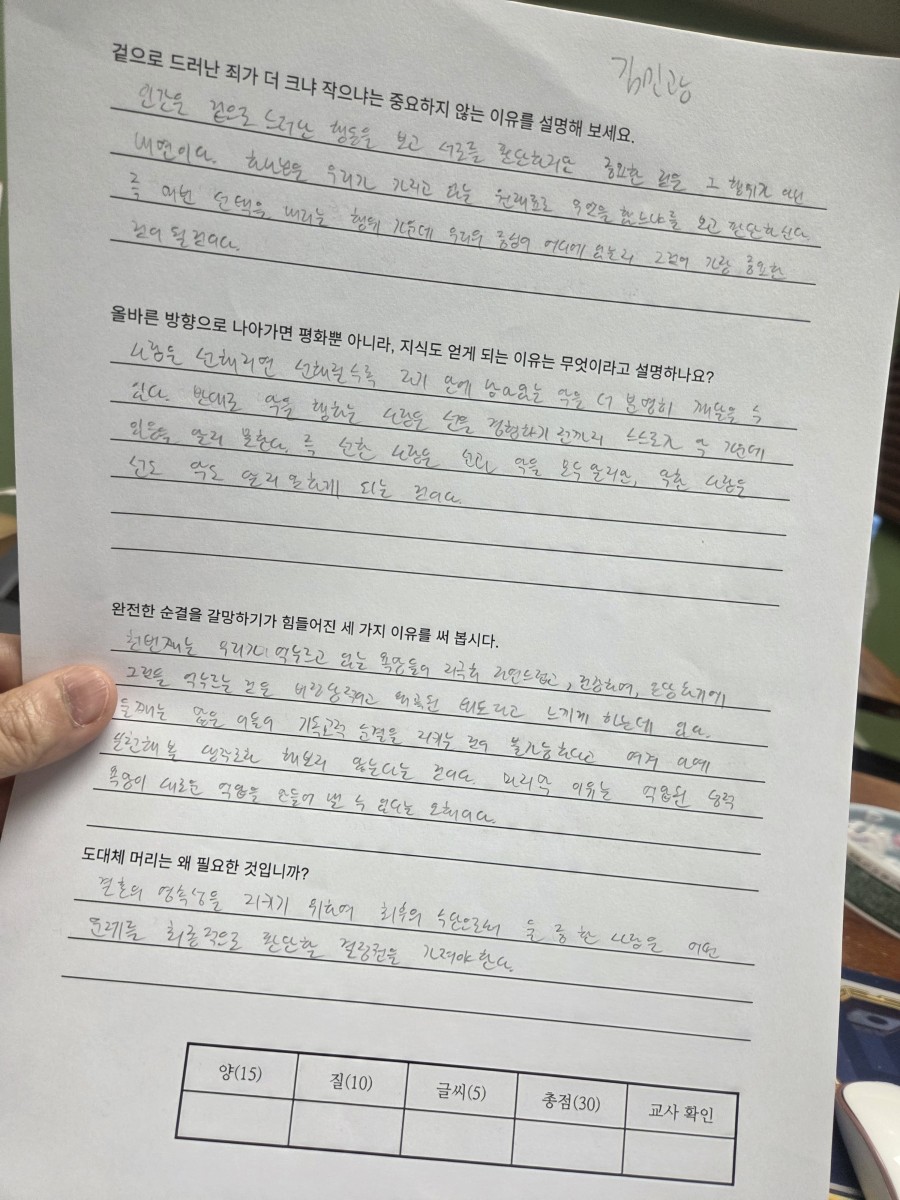 김민광
겉으로 드러난 죄가 더 크냐 작으냐는 중요하지 않는 이유를 설명해 보세요.
인간은 겉으로 드러난 행동을 보고 서로를 판단하지만 중요한 것은 그 행위가 아닌
내면이다. 하나님은 우리가 가지고 있는 원재료로 무엇을 했느냐를 보고 판단하신다.
즉 매번 선택을 내리는 행위 가운데 우리의 중심이 어디에 있는지 그것이 가장 중요한
것이 될 것이다.
올바른 방향으로 나아가면 평화뿐 아니라, 지식도 얻게 되는 이유는 무엇이라고 설명하나요?
사람은 선해지면 선해질수록 자기 안에 남아있는 악을 더 분명히 깨달을 수
있다. 반대로 악을 행하는 사람은 선을 경험하기 전까지 스스로가 악 가운데
있음을 알지 못한다. 즉 선한 사람은 선과 악을 모두 알지만, 악한 사람은
선도 악도 알지 못하게 되는 것이다.
완전한 순결을 갈망하기가 힘들어진 세 가지 이유를 써 봅시다.
첫번째는 우리가 억누르고 있는 욕망들이 지극히 자연스럽고, 건강하며, 온당하기에
그것을 억누르는 것은 비정상적이고 왜곡된 태도라고 느끼게 하는데 있다.
둘째는 많은 이들이 기독교적 순결을 지키는 것이 불가능하다고 여겨 아예
실천해 볼 생각조차 해보지 않는다는 것이다. 마지막 이유는 억압된 성적
욕망이 새로운 억압을 만들어 낼 수 있다는 오해이다.
도대체 머리는 왜 필요한 것입니까?
결혼의 영속성을 지키기 위하여 최후의 수단으로써 둘 중 한 사람은 어떤
문제를 최종적으로 판단할 결정권을 가져야 한다.
양(15) 질(10) 글씨(5) 총점(30) 교사 확인